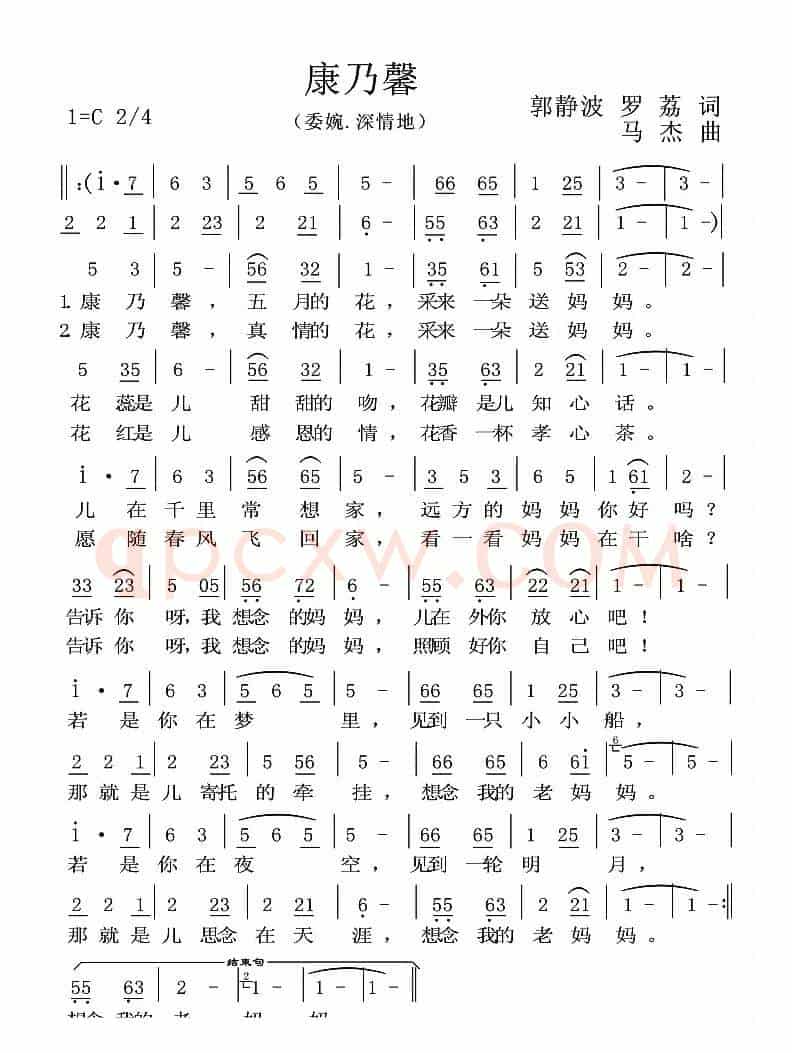 康乃馨
1=C 2/4
（委婉.深情地）
郭静波 罗荔 词
马杰 曲
‖:(i·7 | 6 3 | 5 6 5 | 5 - | 66 65 | 1 25 | 3 - | 3 - |
2 2 1 | 2 23 | 2 21 | 6 - | 55 63 | 2 21 | 1 - | 1 -)
5 3 | 5 - | 56 32 | 1 - | 35 61 | 5 53 | 2 - | 2 - |
1.康乃馨，五月的花，采来一朵送妈妈。
2.康乃馨，真情的花，采来一朵送妈妈。
5 35 | 6 - | 56 32 | 1 - | 35 63 | 2 21 | 1 - | 1 - |
花蕊是儿 甜甜的吻，花瓣是儿知心话。
花红是儿 感恩的情，花香一杯孝心茶。
i·7 | 6 3 | 56 65 | 5 - | 3 5 3 | 6 5 | 1 61 | 2 - |
儿在千里常想家，远方的妈妈你好吗？
愿随春风飞回家，看一看妈妈在干啥？
qpcxw.COM
33 23 | 5 05 | 56 72 | 6 - | 55 63 | 22 21 | 1 - | 1 - |
告诉你呀，我想念的妈妈，儿在外你放心吧！
告诉你呀，我想念的妈妈，照顾好你自己吧！
i·7 | 6 3 | 5 6 5 | 5 - | 66 65 | 1 25 | 3 - | 3 - |
若是你在梦里，见到一只小小船，
2 2 1 | 2 23 | 5 56 | 5 - | 66 65 | 6 6i | 6 5 - | 5 - |
那就是儿寄托的牵挂，想念我的老妈妈。
i·7 | 6 3 | 5 6 5 | 5 - | 66 65 | 1 25 | 3 - | 3 - |
若是你在夜空，见到一轮明月，
2 2 1 | 2 23 | 2 21 | 6 - | 55 63 | 2 21 | 1 - | 1 - :‖
那就是儿思念在天涯，想念我的老妈妈。
结束句
55 63 | 2 - | 2 1 - | 1 - | 1 - ‖
想念我的老妈妈